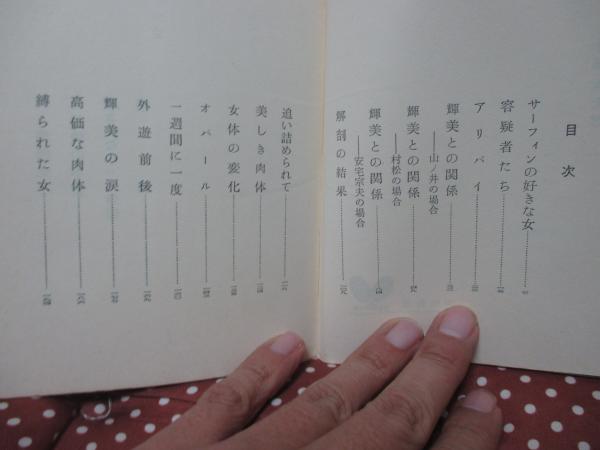 目次
サーフィンの好きな女
容疑者たち
アリバイ
輝美との関係
――山ノ井の場合
輝美との関係
――村松の場合
輝美との関係
――安宅宗夫の場合
解剖の結果
追い詰められて
美しき肉体
女体の変化
オパール
一週間に一度
外遊前後
輝美の涙
高価な肉体
縛られた女